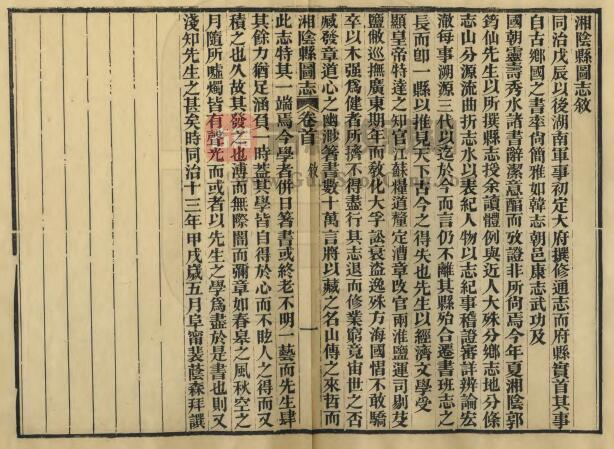 湘陰縣圖志敘
同治戊辰以後湖南軍事初定大府撰修通志而府縣實首其事
自古鄉國之書率尚簡雅如韓志朝邑康志武功及
國朝靈壽秀水諸書辭潔意賅而攷證非所尚焉今年夏湘陰郭
筠仙先生以所撰縣志授余讀體例與近人大殊分鄉志地分條
志山分源流曲折志水以表紀人物以志紀事稽證審詳辨論宏
澈每事溯源三代以迄於今而言仍不離其縣殆合遷書班志之
長而卽一縣以推見天下古今之得失也先生以經濟文學受
顯皇帝特達之知官江蘇糧道釐定漕章改官兩淮鹽運司剔芟
鹽敝巡撫廣東期年而敎化大孚訟衰盜逸殊方海國慴不敢驕
卒以木强爲健者所擠不得盡行其志退而修業窮竟宙世之否
臧發章道心之幽渺箸書數十萬言將以藏之名山傳之來哲而
湘陰縣圖志 卷首 敘 一
此志特其一端焉今學者併日箸書或終老不明一藝而先生肆
其餘力猶足涵負一時蓋其學皆自得於心而不眩人之得而又
積之也久故其發之也溥而無際闇而彌章如春皋之風秋空之
月隨所噓燭皆有聲光而或者以先生之學爲盡於是書也則又
淺知先生之甚矣時同治十三年甲戌歲五月阜甯裴蔭森拜譔